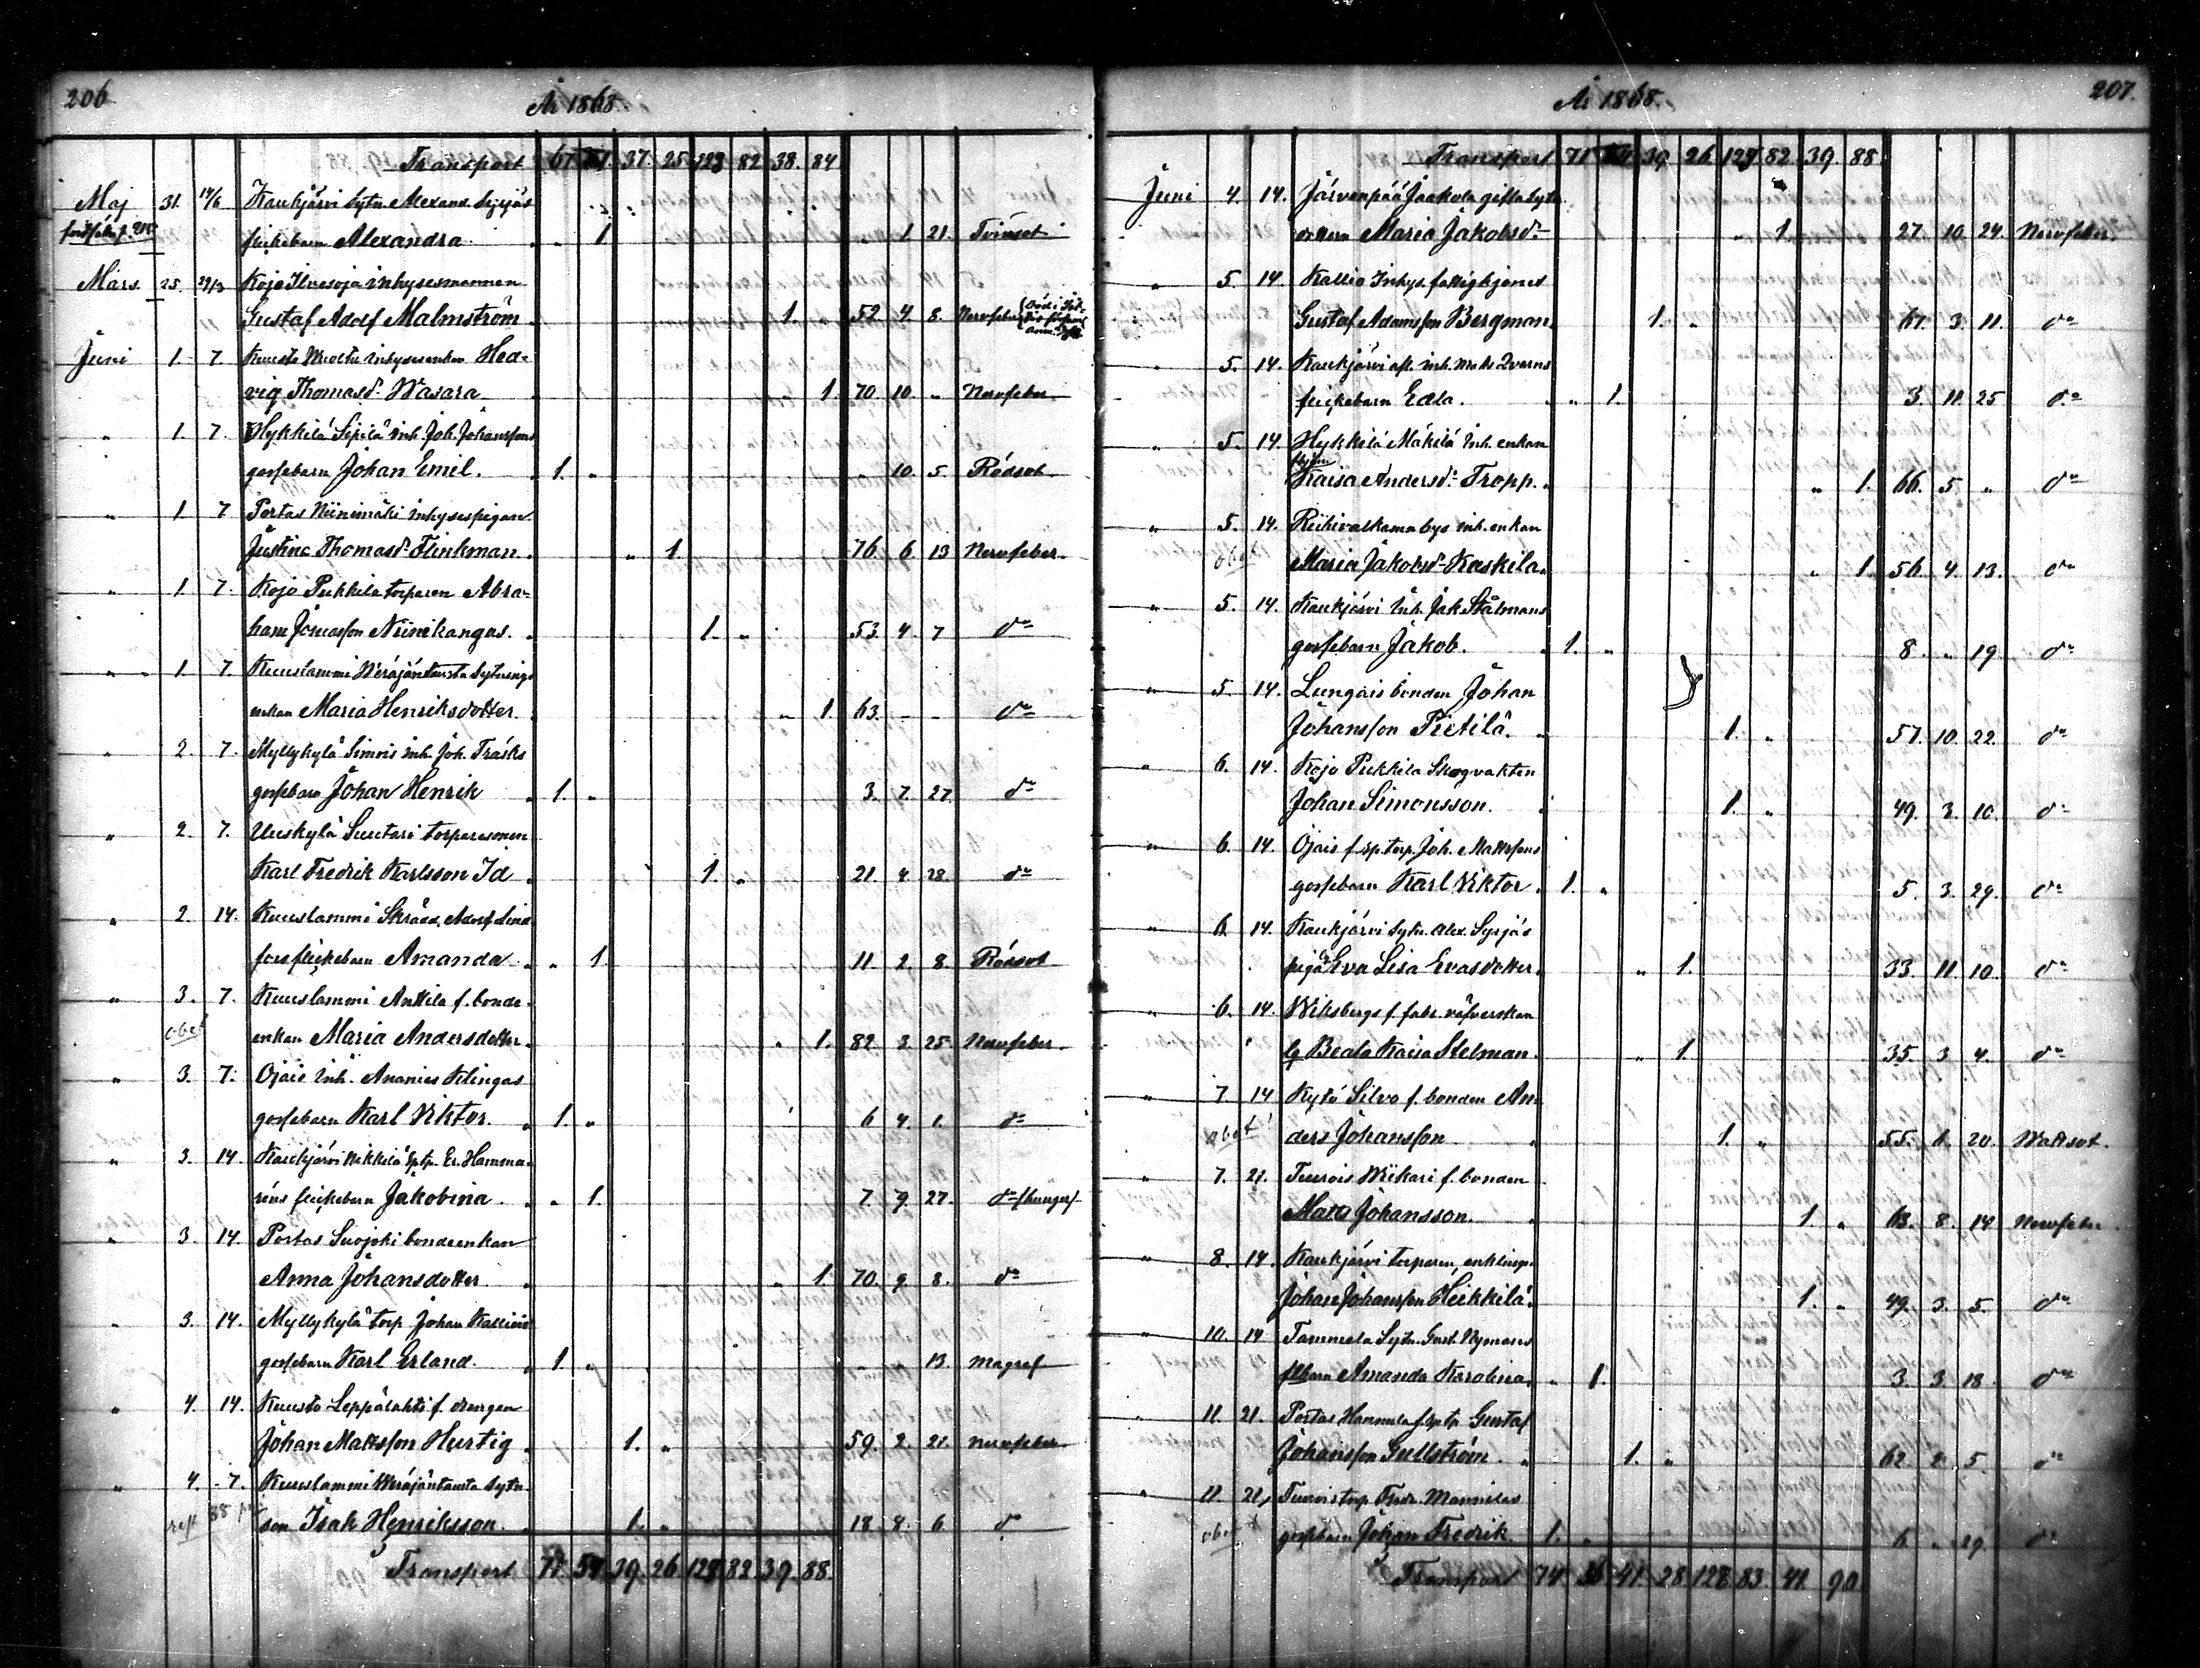 206
År 1868.
Transport 67. 51. 37. 25. 123 82 38. 84
Maj 31. 14/6 Kaukjärvi Sytn. Alexand. Syrjäs
flickebarn Alexandra " 1 " 1 21. Tvinsot
Mars 25. 29/3 Kojo Ilvesoja inhysesmannen
Gustaf Adolf Malmström 1. " 52 4 8. Nervfeber
Juni 1. 7. Kuusto inhysesenkan Hed-
vig Thomasd:r Wasara " 1. 70. 10. " Nervfeber
" 1. 7. Hykkilä Sipilä inh. Joh. Johanssons
gossebarn Johan Emil. 1. " " 10. 5. Rödsot
" 1. 7 Portas Niinimäki inhysespigan
Justina Thomasd:r Flinkman. " 1 76. 6. 13 Nervfeber.
" 1. 7. Kojo Pukkila torparen Abra-
ham Jonasson Niinikangas. 1. " 53. 4. 7 d:o
" 1. 7. Kuuslammi Weräjäntausta Sytnings
enkan Maria Henriksdotter. " 1. 63. - - d:o
" 2. 7. Myllykylä Simois inh. Joh. Träsks
gossebarn Johan Henrik 1. " 3. 7. 27 d:o
" 2. 7. Uuskylä Suutari torparesonen
Karl Fredrik Karlsson Id 1. " 21. 4 28. d:o
" 2. 14. Kuuslammi Skrädd. Adolf Lind
fors flickebarn Amanda " 1. 11. 2. 8. Rödsot
" 3. 7. Kuuslammi Anttila f. bonde-
enkan Maria Andersdotter. " 1. 82. 3. 25. Nervfeber.
" 3. 7. Ojais inh. Ananias Klingas
gossebarn Karl Viktor. 1. " 6 4. 1. d:o
" 3. 14. Kaukjärvi Nikkilä Sptp. Er. Hamma-
réns flickebarn Jakobina. " 1. 7. 9. 27. d:o (hunger)
" 3. 14. Portas Suojoki bondeenkan
Anna Johansdotter " 1. 70. 9. 8. d:o
3. 14. Myllykylä torp. Johan Kalliois
gossebarn Karl Erland. 1. " " " 13. Magref
" 4. 14. Kuusto Leppälahti f. drengen
Johan Mattsson Hurtig 1. " 59. 2. 21. Nervfeber
" 4. 7. Kuuslammi Weräjäntausta Sytn.
son Isak Henriksson. 1. " 18. 8. 6 d:o
Transport 71. 54. 39. 26. 124 82 39. 88.
207.
År 1868.
Transport 71 54 39. 26 124 82. 39. 88
Juni 4. 14. Järvenpää Jaakola gifta Sytn.
Maria Jakobsd:r " 1. 27. 10. 24. Nervfeber
" 5. 14. Kallio Inhys. fattighjonet
Gustaf Adamsson Bergman 1. " 67. 3. 11. d:o
5. 14. Kaukjärvi afl. inh. Matts Qvarns
flickebarn Edla. " 1. 3. 11. 25 d:o
" 5. 14. Hykkilä Mäkilä Inh. enkan
Kaisa Andersd:r Tropp. " 1. 66. 5. " d:o
" 5. 14. Riihivalkama bys inh. enkan
Maria Jakobsd:r Kaskila. " 1. 56. 4. 13. d:o
" 5. 14. Kaukjärvi Inh. Jak. Stålmans
gossebarn Jakob. 1. " 8. " 19. d:o
" 5. 14. Lungois bonden Johan
Johansson Pietilä. 1. " 57. 10. 22. d:o
" 6. 14. Kojo Pukkila Skogvakten
Johan Simonsson. 1. " 49. 3. 10. d:o
" 6. 14. Ojais f. sp. torp. Joh. Mattssons
gossebarn Karl Viktor. 1. " 5. 3. 29. d:o
" 6. 14. Kaukjärvi Sytn. Alex. Syrjäs
piga Eva Lisa Evasdotter. " 1. 33. 11 10. d:o
" 6. 14. Wiksbergs f. fabr. väfverskan
Beata Kaisa Stelman. " 1. 35. 3 4. d:o
" 7 14 Kytö Silvo f. bonden An-
ders Johansson 1. " 55. 1. 20. Wattsot.
" 7. 21. Turois Wiikari f. bonden
Matts Johansson. 1. " 63. 8. 14 Nervfeber
" 8. 14. Kaukjärvi torparen, enklingen
Johan Johansson Heikkilä. 1. " 49. 3. 5. d:o
10. 14 Tammela Sytn. Gust. Nymans
flbarn Amanda Karolina. " 1. 3. 3. 18. d:o
11. 21. Portas Hannula f. Sptp Gustaf
Johansson Gullström. 1. " 62. 2. 5. d:o
" 11. 21. Turois torp. Fredr. Mannilas
gossebarn Johan Fredrik. 1. " 6. " 29. d:o
Transport 74. 56 41. 28 128 83. 41 90